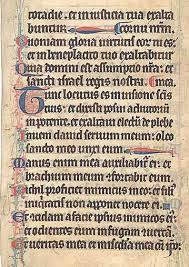 tota die. et in iusticia tua exalta
buntur. cornu nrm.
Quoniam gloria virtutis eor̄ tu es:
et in beneplacito tuo exaltabitur
Quia domini est assumptio nrā: et
sancti israel regis nostri.
Tunc locutus es in visione scīs
tuis: et dixisti posui adiutoriū
in potente: et exaltavi electū de plebe
Inveni david servum meum: oleo
sancto meo unxi eum
Manus enim mea auxiliabit̄ ei: et
brachium meum confortabit eum.
Nichil proficiet inimicus in eo: et filiꝰ
iniquitatis non apponet nocere ei.
Et concidam a facie ipsius inimicos eiꝰ:
et odientes eum in fugam vertam.
Et veritas mea et misc̄dia mea cū ipō: